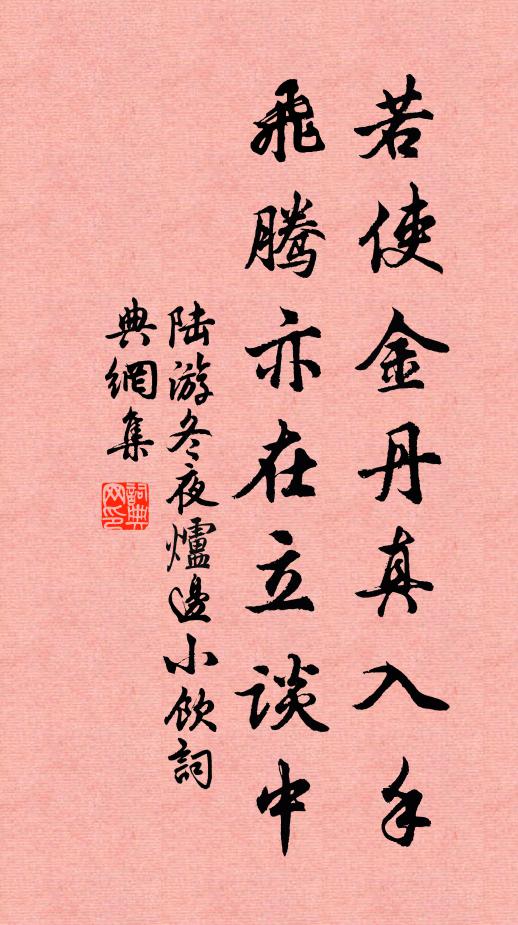 若使金丹真入手
飛騰亦在立談中
陆游冬夜爐邊小飲詞
典網集
詞典网印